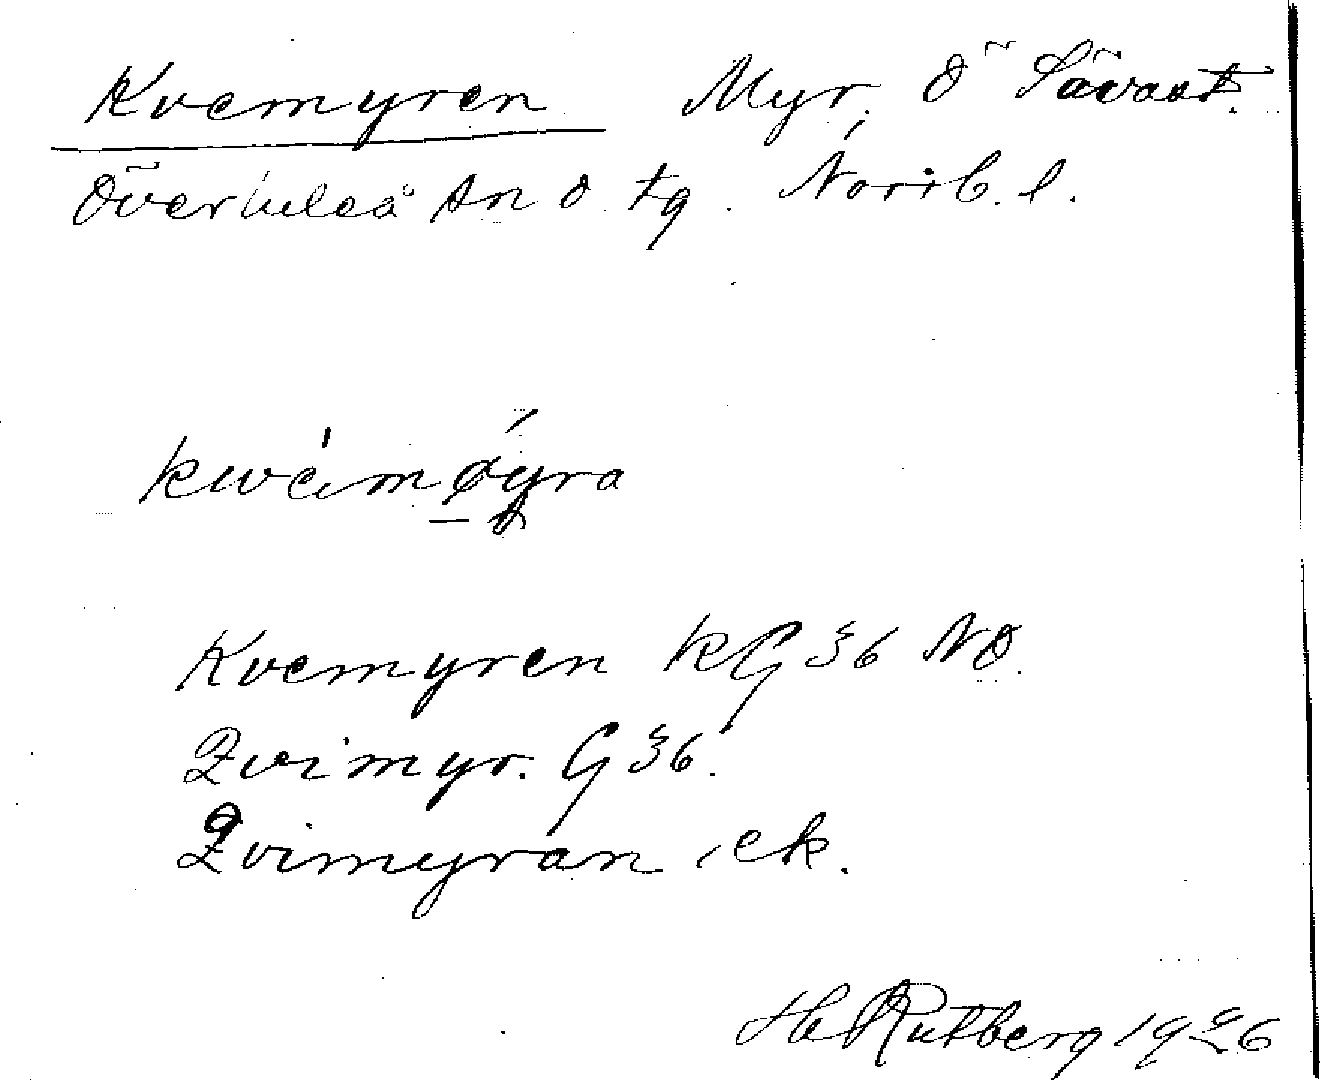 Kvemyren Myr. Ö Sävast.
Överluleå sn o tg. Norrb. l.
kwèmøyra
Kvemyren KG 36 NO.
Qvimyr. G 36.
Qvimyran, ek.
H. Rutberg 1926